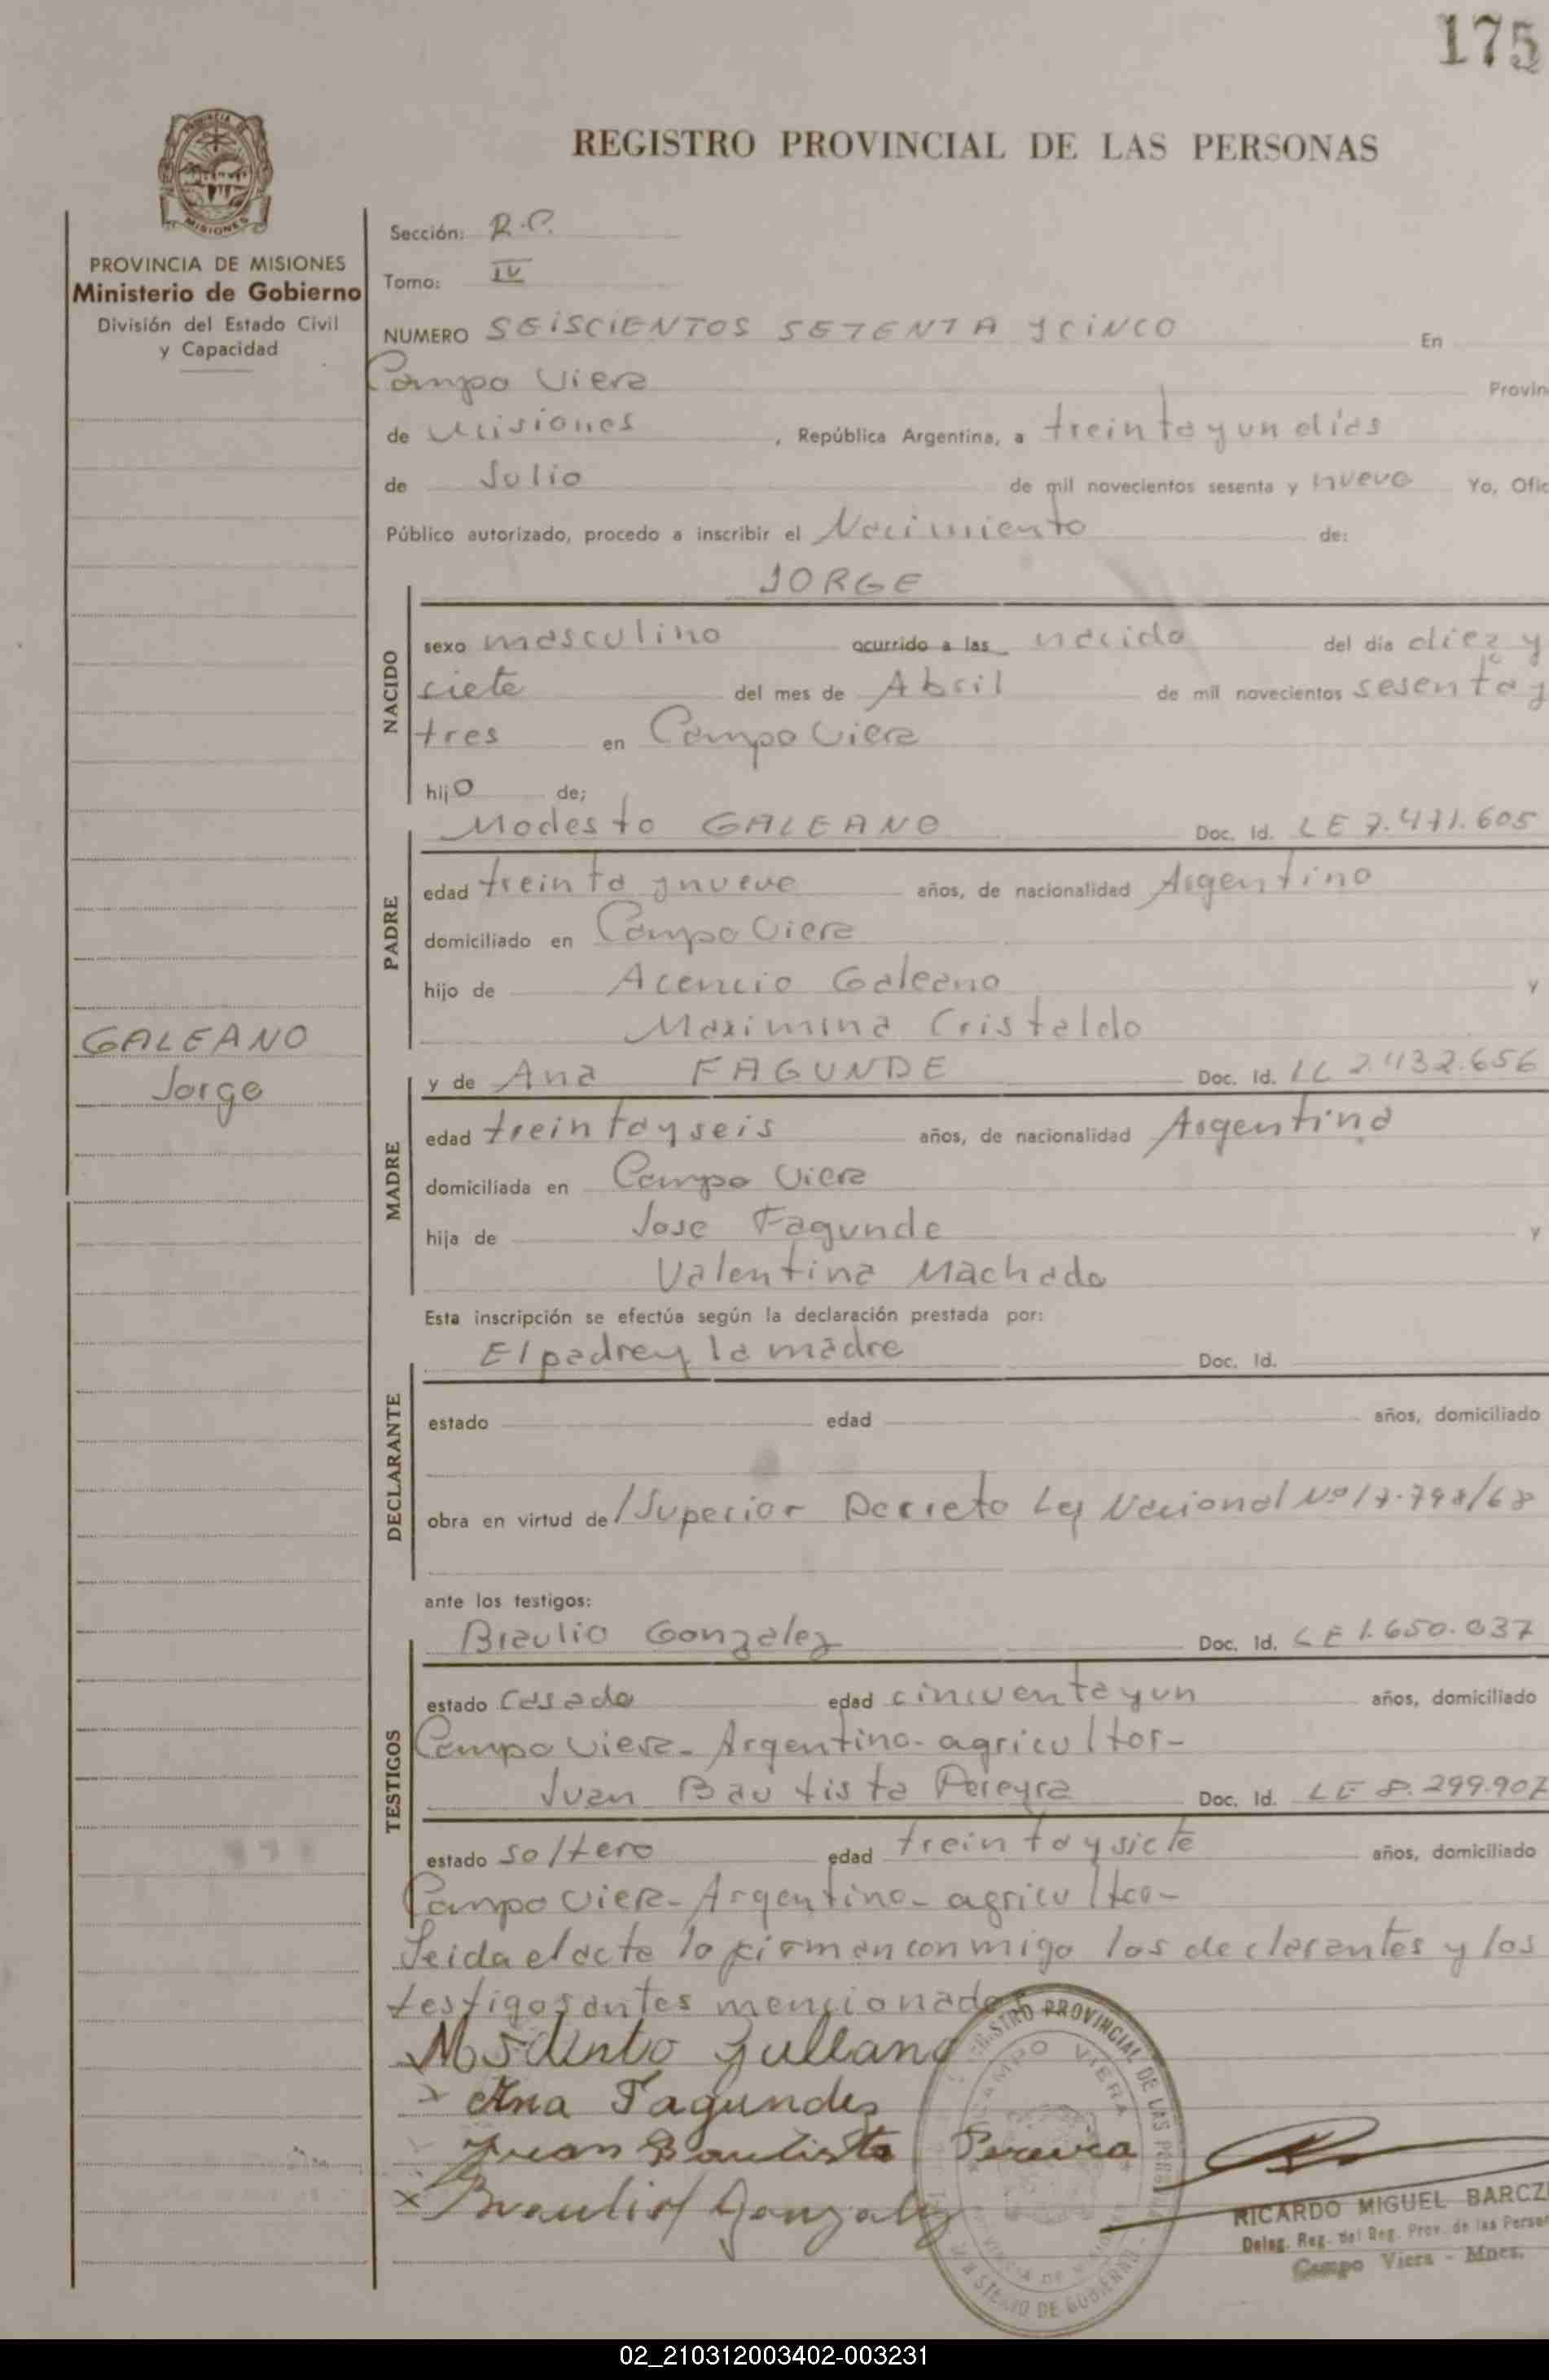 175
REGISTRO PROVINCIAL DE LAS PERSONAS
MISIONES
PROVINCIA DE MISIONES
Ministerio de Gobierno
División del Estado Civil
y Capacidad
Sección: R.P.
Tomo: IV
NUMERO SEISCIENTOS SETENTA Y CINCO En
Campo Viera Provin
de Misiones , República Argentina, a treinta y un días
de Julio de mil novecientos sesenta y nueve Yo, Ofic
Público autorizado, procedo a inscribir el Nacimiento de:
JORGE
NACIDO
sexo masculino ocurrido a las nacido del día diez y
siete del mes de Abril de mil novecientos sesenta y
tres en Campo Viera
hijo de;
Modesto GALEANO Doc. Id. LE 7.471.605
PADRE
edad treinta y nueve años, de nacionalidad Argentino
domiciliado en Campo Viera
hijo de Acencio Galeano y
Maximina Cristaldo
GALEANO
Jorge
y de Ana FAGUNDE Doc. Id. LC 2.432.656
MADRE
edad treinta y seis años, de nacionalidad Argentina
domiciliada en Campo Viera
hija de Jose Fagunde y
Valentina Machado
Esta inscripción se efectúa según la declaración prestada por:
El padre y la madre Doc. Id.
DECLARANTE
estado edad años, domiciliado
obra en virtud de /Superior Decreto Ley Nacional Nº 17.798/68
ante los testigos:
Braulio Gonzalez Doc. Id. LE 1.650.037
TESTIGOS
estado Casado edad cincuenta y un años, domiciliado
Campo Viera- Argentino- agricultor-
Juan Bautista Pereyra Doc. Id. LE 8.299.907
estado soltero edad treinta y siete años, domiciliado
Campo Viera- Argentino- agricultor-
Leida el acta la firman conmigo los declarantes y los
testigos antes mencionados
Ana Fagundes
Juan Bautista Pereira
x Braulio Gonzalez
REGISTRO PROVINCIAL DE LAS PERSONAS
CAMPO VIERA
MINISTERIO DE GOBIERNO
RICARDO MIGUEL BARCZ
Deleg. Reg. del Reg. Prov. de las Person
Campo Viera - Mnes.
02_210312003402-003231